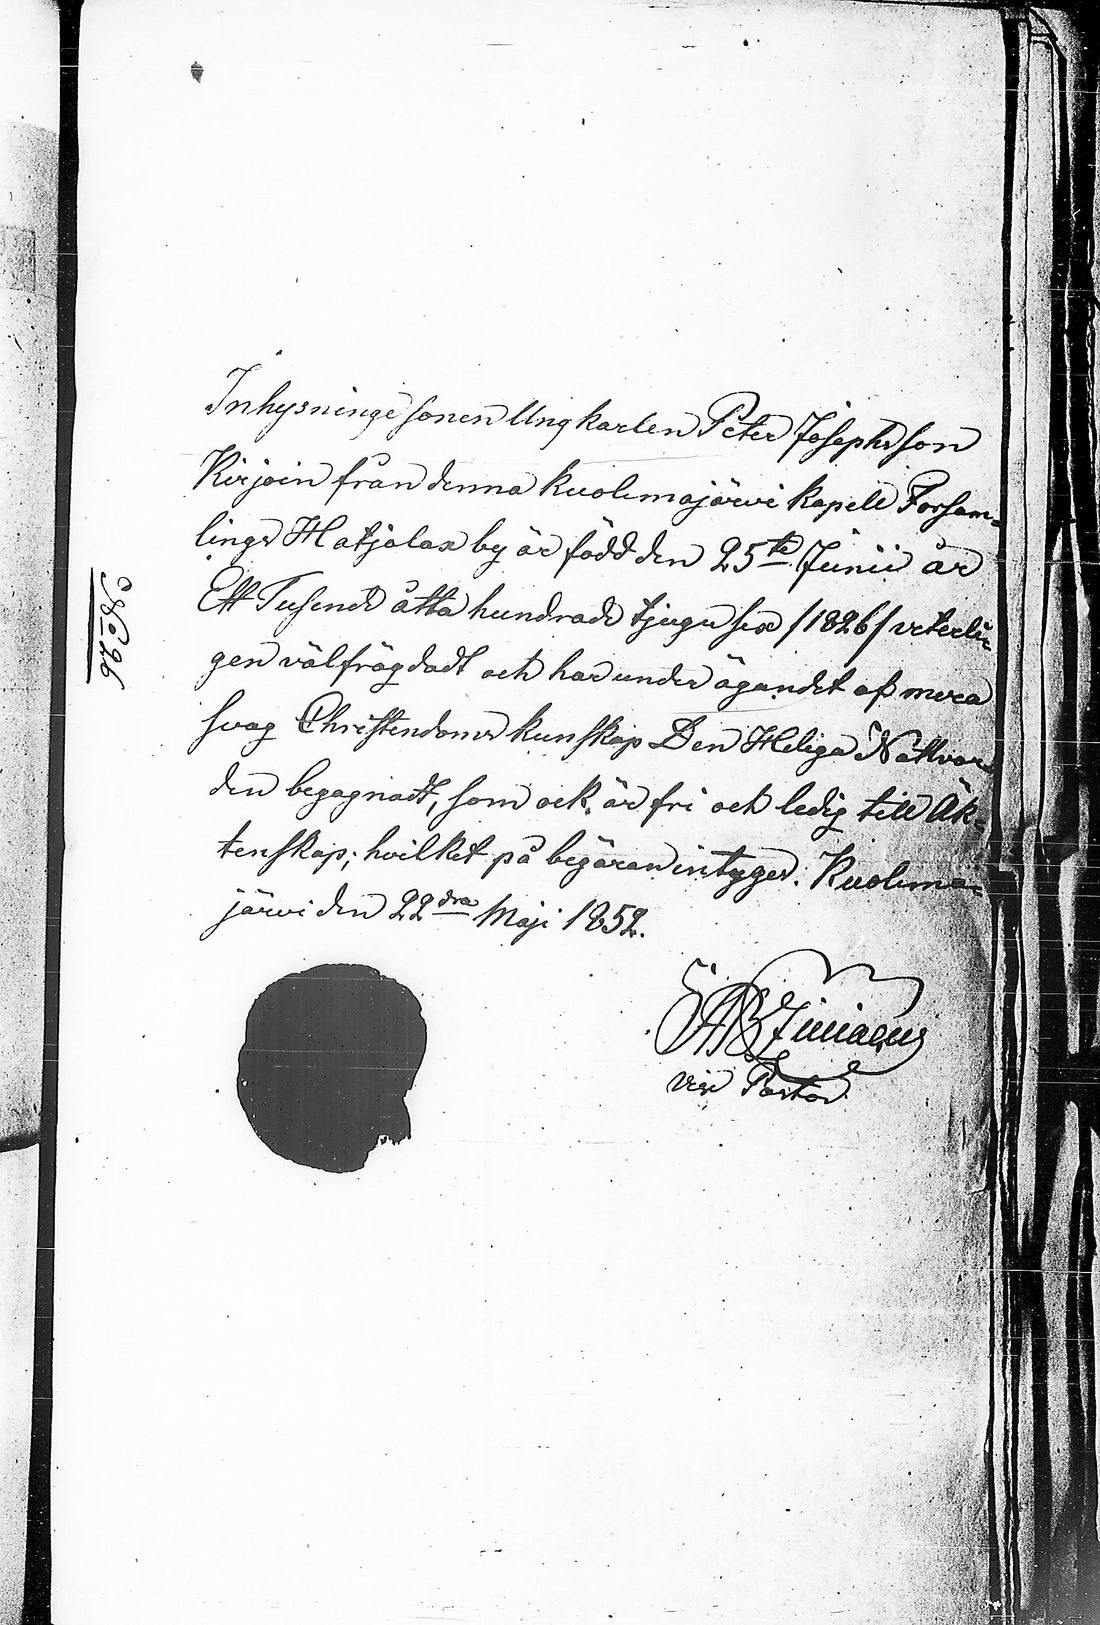 Inhysninge sonen Ungkarlen Peter Josephsson
Kirjoin från denna Kuolemajärvi Kapell Försam-
lings Hatjalax by är född den 25te Junii år
Ett Tusende åtta hundrade tjugu sex /1826/ veterli-
gen välfrägdadt och har under ägandet af mera
svag Christendoms kunskap Den Heliga Nattvar
den begagnadt, som ock är fri och ledig till Äk-
tenskap; hvilket på begäran intygas. Kuolema-
järvi den 22dra Maji 1852.
vice Pastor.
No 26